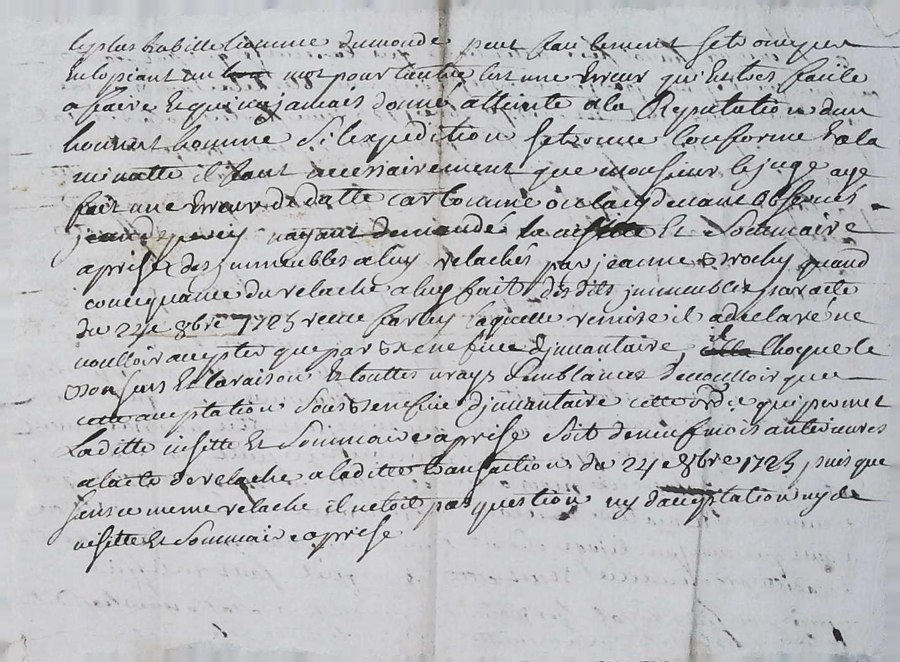 le plus habille homme du monde peut facilement se tromper
En copiant un mot pour l'autre c'est une Erreur qu'Est tres facile
a faire Et qui n'a jamais donné atteinte a la Reputation d'un
honnest homme Si l'expedition se trouve Conforme a la
minutte il faut necessairement que monsieur le juge aye
fait une Erreur de datte car comme on l'a cy devant observés
n'ayant demandés la visitte Et Sommaire
aprise des jmmeubles a luy relachés par jeanne quand
consequance du relache a luy fait des dits jmmeubles par acte
du 24e 8bre 1725 receu par laquelle remise il a declaré ne
voulloir accepter que par Benefice d'jnvantaire, il Choque le
Bon sens Et la raison Et touttes vrayes semblances de voulloir que
cette acceptation Sous Benefice d'jnvantaire cette ord.ce qui permet
Laditte visitte Et Sommaire aprise Soit de neuf mois anterieures
a l'acte de relache a laditte transaction du 24e 8bre 1725 puis que
sans ce meme relache il n'etoit pas question ny d'acceptation ny de
visitte Et Sommaire aprise